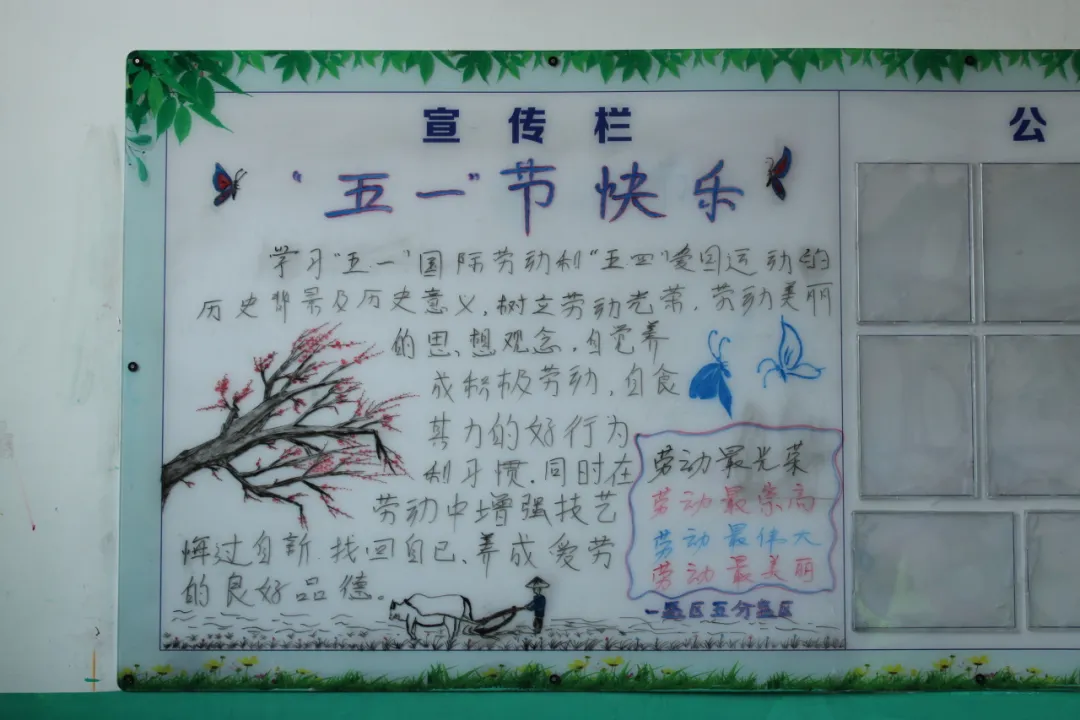 宣传栏
公
“五一”节快乐
学习“五一”国际劳动和“五四”爱国运动的
历史背景及历史意义,树立劳动光荣,劳动美丽
的思想观念,自觉养
成积极劳动,自食
其力的好行为
和习惯.同时在
劳动中增强技艺
悔过自新.找回自己、养成爱劳
的良好品德。
劳动最光荣
劳动最崇高
劳动最伟大
劳动最美丽
一监区五分监区